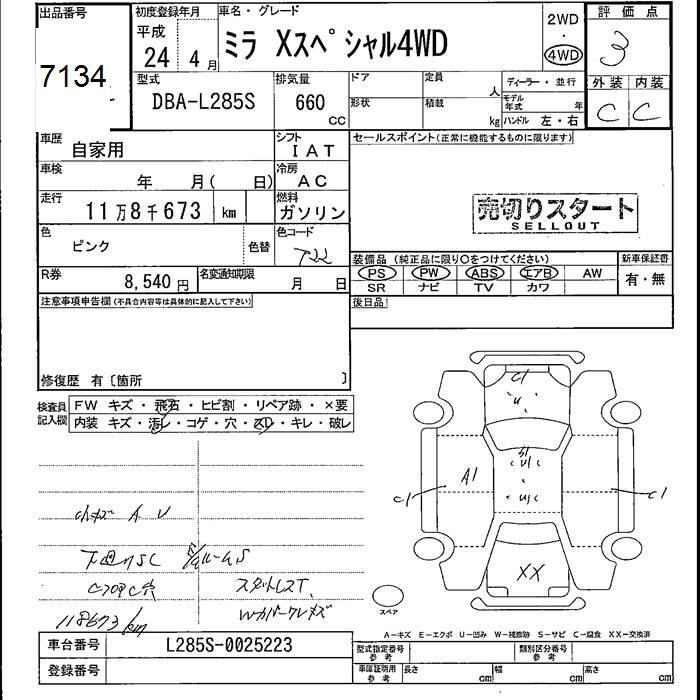 出品番号
7134
初度登録年月
平成
24 年 4 月
車名・グレード
ミラ Xスペシャル4WD
2WD
・
4WD
評価点
3
外装 内装
C C
型式
DBA-L285S
排気量
660
CC
ドア
形状
定員
人
積載
kg
ディーラー・並行
モデル年式 年
ハンドル 左・右
車歴
自家用
シフト
IAT
車検
年 月( 日)
冷房
AC
走行
11万8千673 km
燃料
ガソリン
色
ピンク
色替
色コード
T22
R券
8,540 円
名変通知期限
月 日
セールスポイント(正常に機能するものに限ります)
売切りスタート
SELLOUT
装備品 (純正品に限り○をつけてください)
新車保証書
PS PW ABS エアB AW
有・無
SR ナビ TV カワ
後日品
注意事項申告欄(不具合内容等は具体的に記入して下さい)
修復歴 有〔箇所 〕
検査員
記入欄
FW キズ・飛石・ヒビ割・リペア跡・×要
内装 キズ・汚レ・コゲ・穴・スレ・キレ・破レ
小キズ A U
下廻りSC
118673 km
C1
U
S1
U1C
U1C
A1
C1
C1
XX
スペア
A-キズ E-エクボ U-凹み W-補修跡 S-サビ C-腐食 XX-交換済
車台番号
L285S-0025223
登録番号
型式指定番号
参考
類別区分番号
参考
車庫証明用
参考
長さ cm
幅 cm
高さ cm